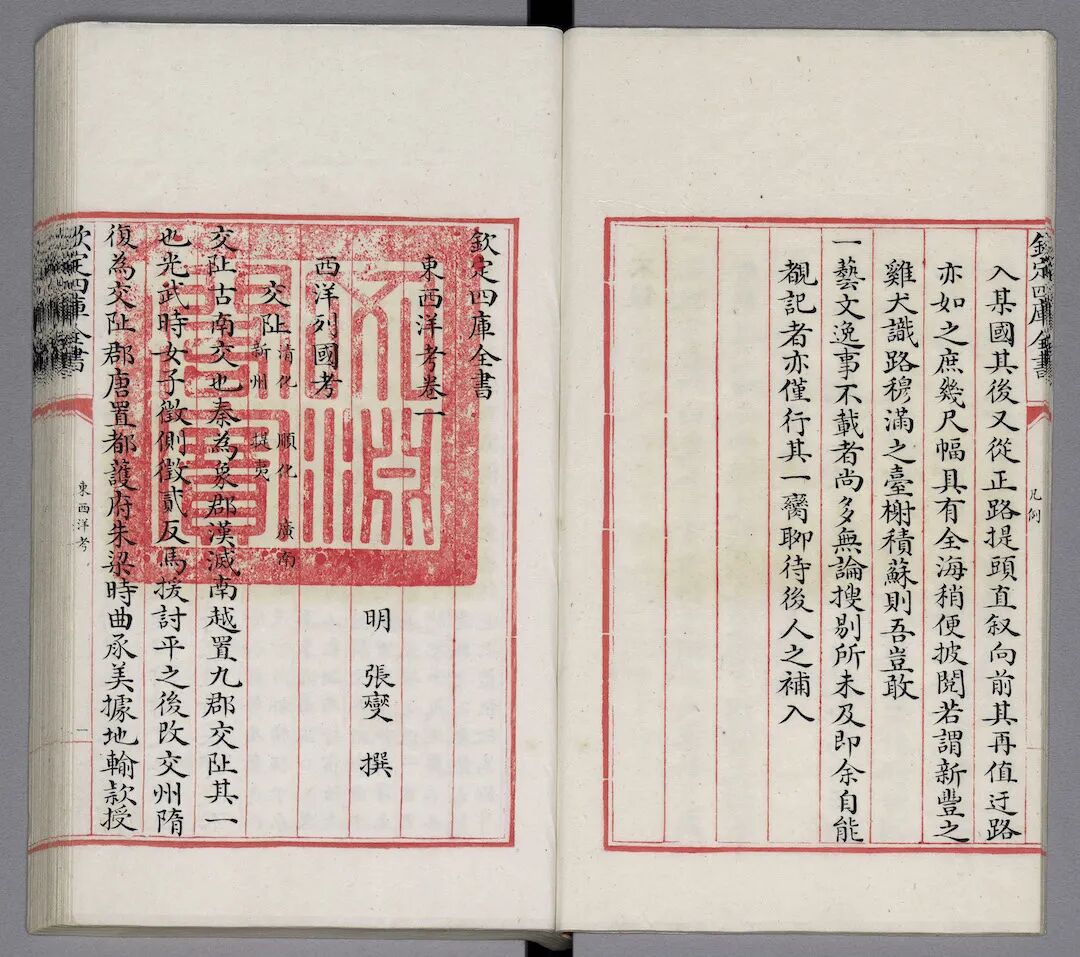 欽定四庫全書
凡例
入某國其後又從正路提頭直叙向前其再值迂路
亦如之庶幾尺幅具有全海稍便披閱若謂新豐之
雞犬識路穆滿之臺榭積蘇則吾豈敢
一藝文逸事不載者尚多無論搜剔所未及即余自能
覩記者亦僅行其一臠聊待後人之補入
欽定四庫全書
東西洋考卷一
明 張燮 撰
西洋列國考
交阯 清化 順化 廣南
新州 提夷
交阯古南交也秦為象郡漢滅南越置九郡交阯其一
也光武時女子徵側徵貳反馬援討平之後改交州隋
復為交阯郡唐置都護府朱梁時曲承美據地輸款授
欽定四庫全書
東西洋考
一